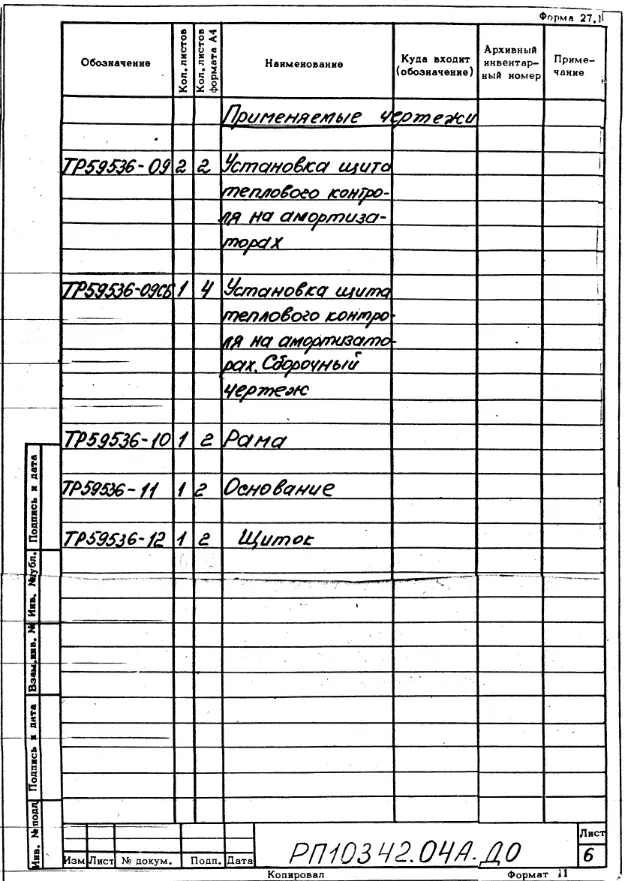 Форма 27.1
Обозначение Кол. листов Кол. листов формата А4 Наименование Куда входит (обозначение) Архивный инвентар-ный номер Приме-чание
Применяемые чертежи
ТР59536-09 2 2 Установка щита
теплового контро-
ля на амортиза-
торах
ТР59536-09СБ 1 4 Установка щита
теплового контро-
ля на амортизато-
рах. Сборочный
чертеж
ТР59536-10 1 2 Рама
ТР59536-11 1 2 Основание
ТР59536-12 1 2 Щиток
Подпись и дата
Инв. № дубл.
Взам. инв. №
Подпись и дата
Инв. № подл
Изм Лист № докум. Подп. Дата
РП10342.04А.ДО
Лист
6
Копировал Формат 11